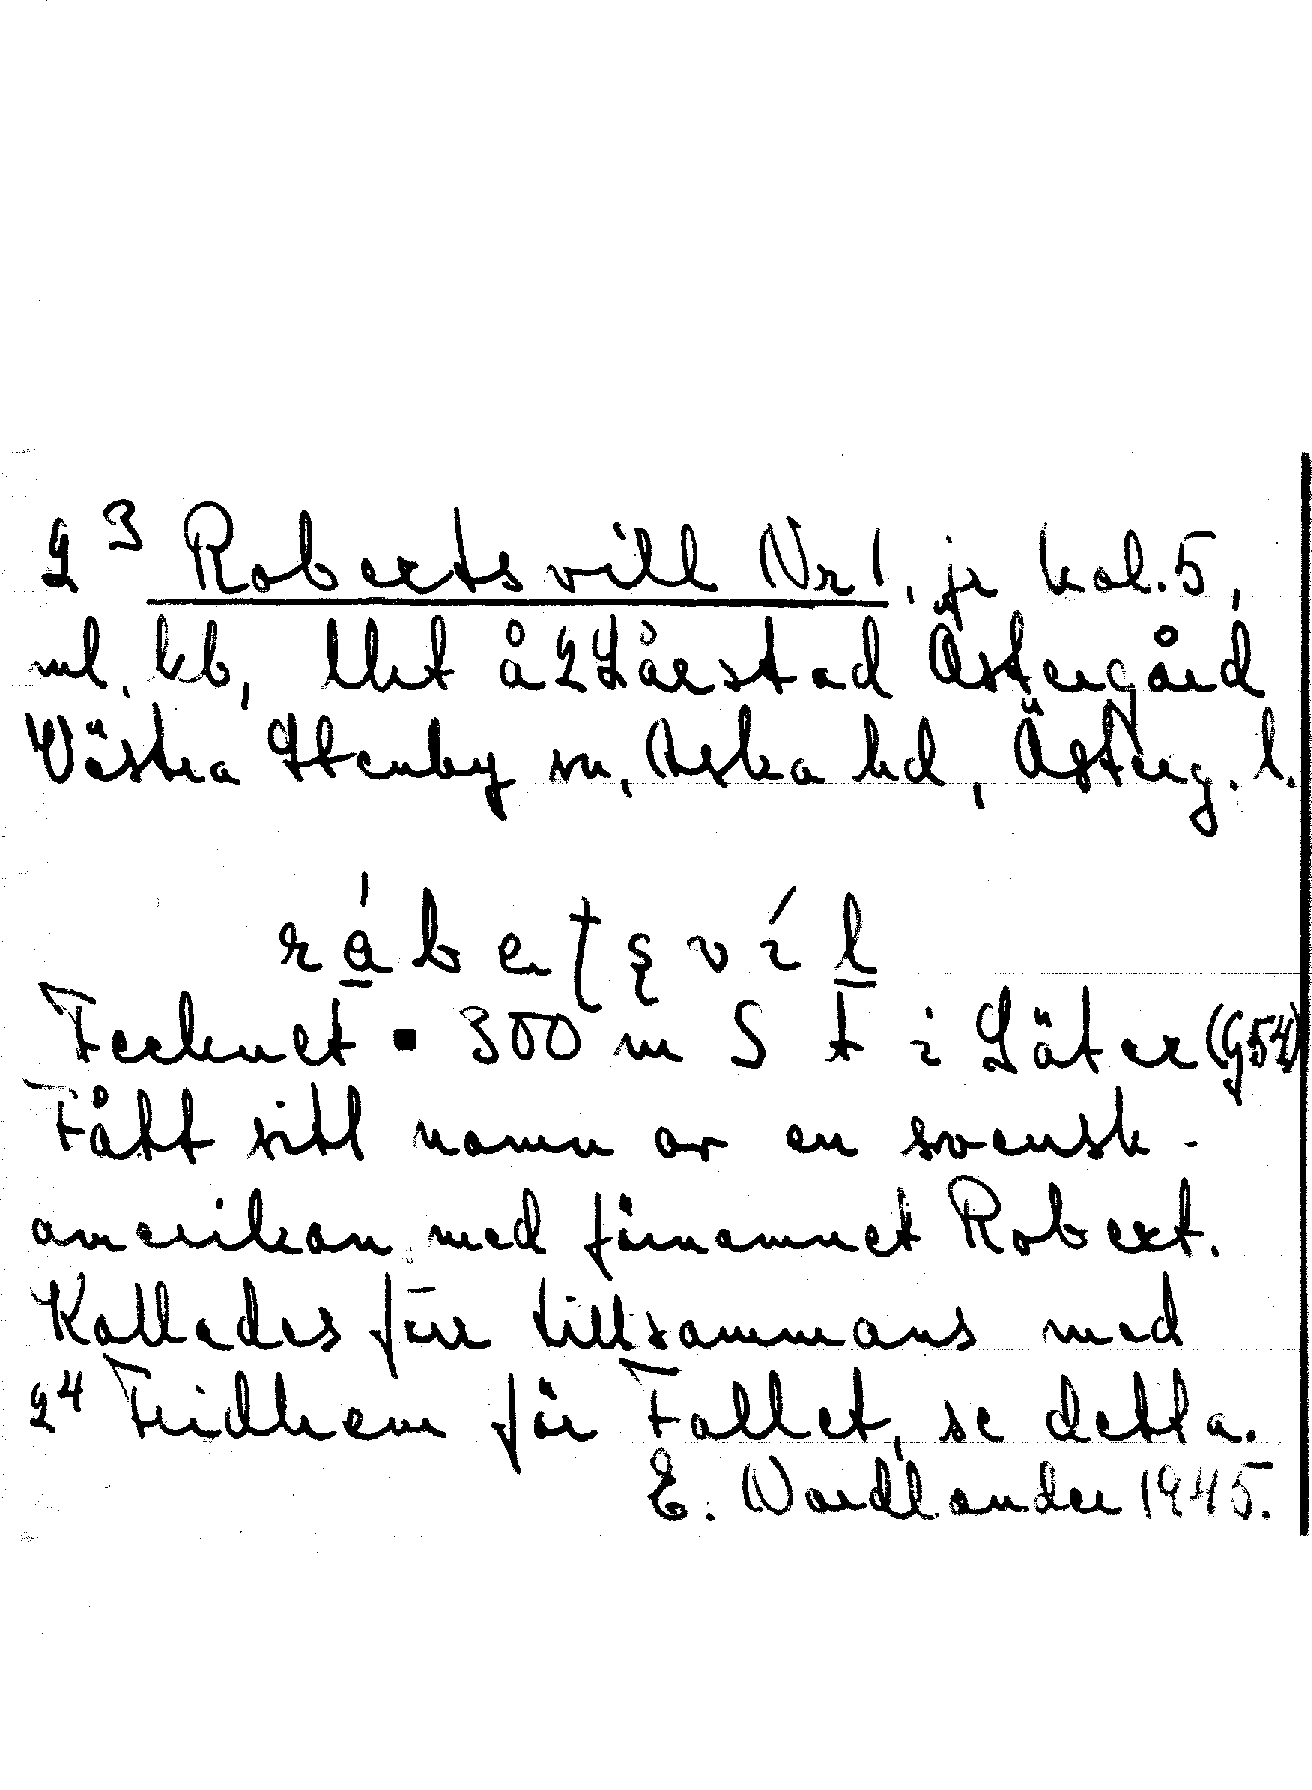 2³ Robertsvill Nr 1, jr kol. 5,
ml. kb, lht å 2 Lårstad Östergård
Västra Stenby sn, Aska hd, Österg. l.
råbeʈʂvíl
Tecknet ▪ 300 m S t i Säter (G54)
Fått sitt namn av en svensk-
amerikan med förnamnet Robert.
Kallades förr tillsammans med
2⁴ Fridhem för Fallet, se detta.
E. Wardlander 1945.